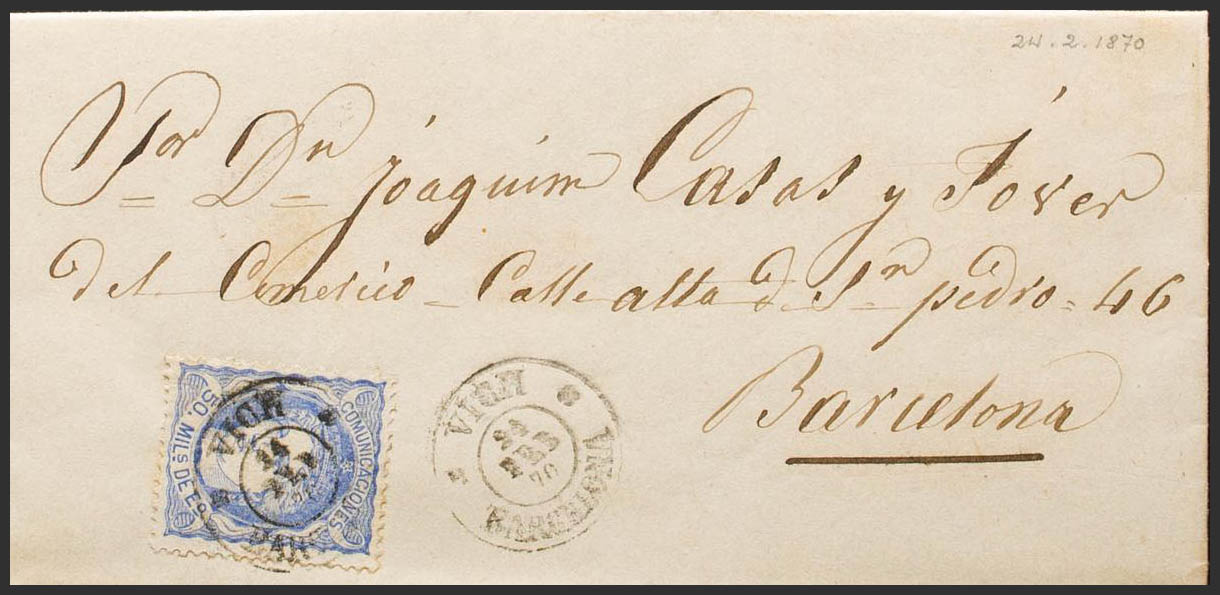 24.2.1870
Sor Dn Joaquim Casas y Jóver
del Comercio - Calle alta de Sn pedro = 46
Barcelona
COMUNICACIONES
50. MILs DE Eo
VICH
24
BAR
VICH 6
24
FEB
70
BARCELONA